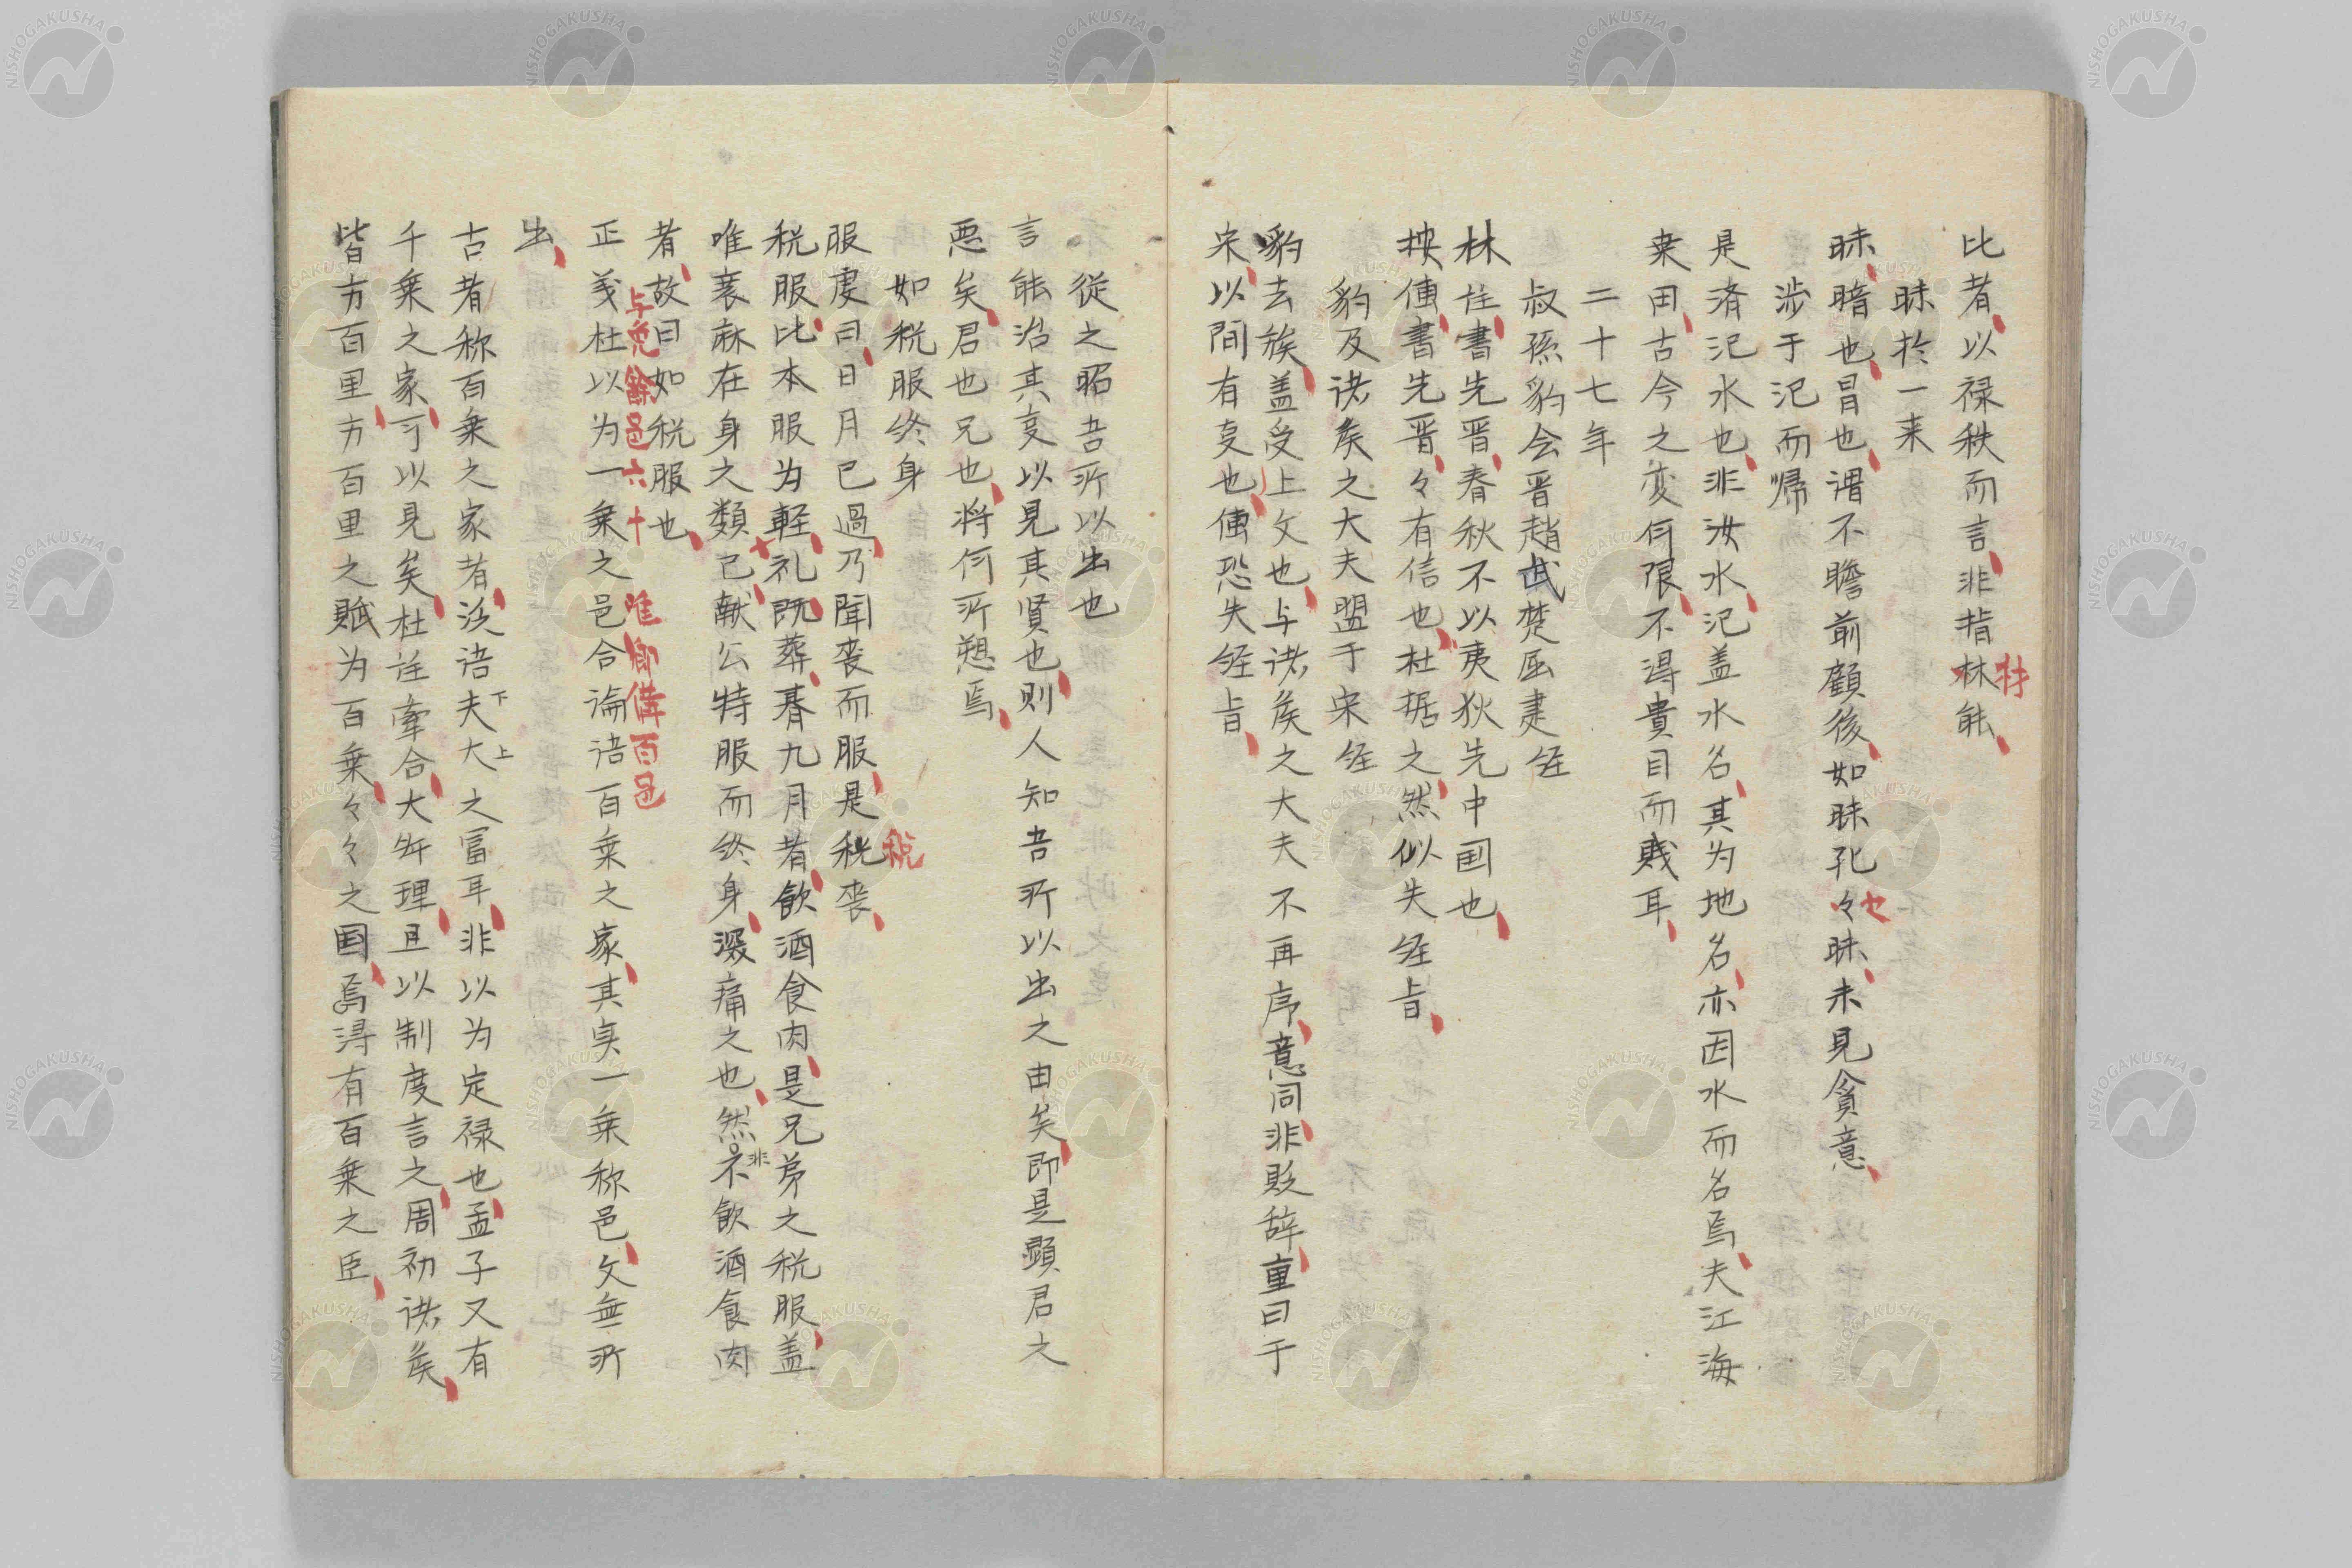 比者以禄秩而言非指林能
材
昧於一来
昧暗也冒也谓不瞻前顧後如昧死々昧未見貪意
也
涉于汜而帰
是済汜水也非汝水汜盖水名其为地名亦因水而名焉夫江海
桒田古今之变何限不得貴目而賎耳
二十七年
叔孫豹会晋趙武楚屈建経
林注書先晋春秋不以夷狄先中国也
按傳書先晋々有信也杜据之然似失経旨
豹及诸矦之大夫盟于宋経
豹去族盖受上文也与诸矦之大夫不再序意同非貶辞重曰于
宋以間有变也傳恐失経旨
從之昭吾所以出也
言能治其变以見其賢也則人知吾所以出之由矣即是顕君之
悪矣君也兄也将何所愬焉
如税服终身
服虔曰日月已過乃聞丧而服是税丧
税
税服比本服为軽礼既葬朞九月者飲酒食肉是兄弟之税服盖
唯衰麻在身之類已献公特服而终身深痛之也然不飲酒食肉
非
者故曰如税服也
与免餘邑六十 唯卿備百邑
正義杜以为一乗之邑合論语百乗之家其実一乗称邑文無所
出
古者称百乗之家者泛语夫大之富耳非以为定禄也孟子又有
下 上
千乗之家可以見矣杜注牽合大失理且以制度言之周初诸矦
皆方百里方百里之賦为百乗々々之国焉得有百乗之臣
NISHOGAKUSHA